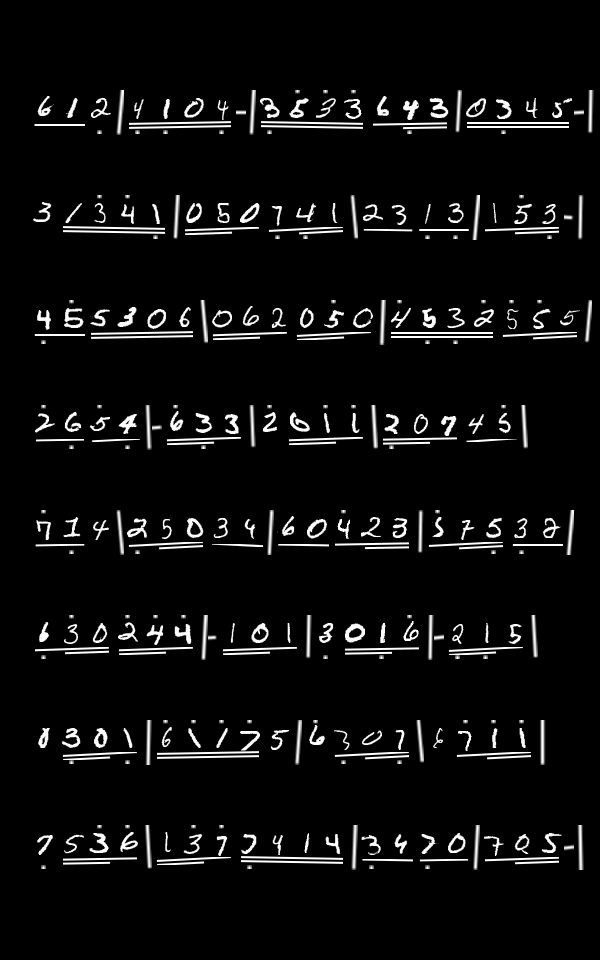 6 1 2 | 4 1 0 4 - | 3 5 3 3 6 4 3 | 0 3 4 5 - |
3 1 3 4 1 | 0 5 0 7 4 1 | 2 3 1 3 | 1 5 3 - |
4 5 5 3 0 6 | 0 6 2 0 5 0 | 4 5 3 2 5 5 5 |
2 6 5 4 | - 6 3 3 | 2 0 1 1 | 2 0 7 4 5 |
7 1 4 | 2 5 0 3 4 | 6 0 4 2 3 | 5 7 5 3 2 |
6 3 0 2 4 4 | - 1 0 1 | 3 0 1 6 | - 2 1 5 |
0 3 0 1 | 6 1 1 7 5 | 6 3 0 7 | 6 7 1 1 |
7 5 3 6 | 1 3 7 7 4 1 4 | 3 4 7 0 | 7 0 5 - |